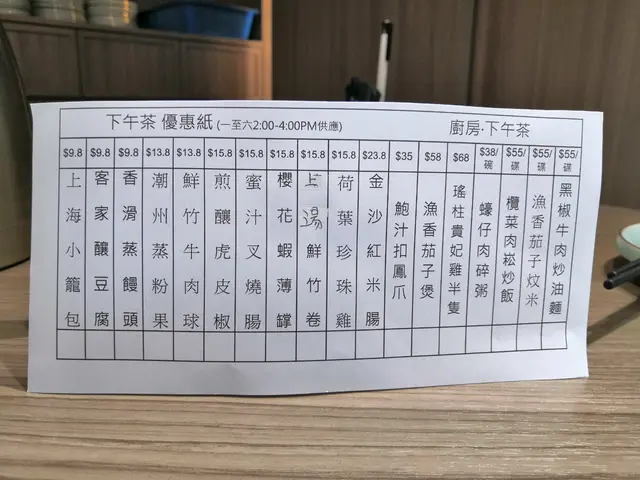 下午茶 優惠紙 (一至六2:00-4:00PM供應)
廚房·下午茶
$9.8 $9.8 $9.8 $13.8 $13.8 $15.8 $15.8 $15.8 $15.8 $15.8 $23.8 $35 $58 $68 $38/碗 $55/碟 $55/碟 $55/碟
上海小籠包
客家釀豆腐
香滑蒸饅頭
潮州蒸粉果
鮮竹牛肉球
煎釀虎皮椒
蜜汁叉燒腸
櫻花蝦薄罉
上湯鮮竹卷
荷葉珍珠雞
金沙紅米腸
鮑汁扣鳳爪
漁香茄子煲
瑤柱貴妃雞半隻
蠔仔肉碎粥
欖菜肉崧炒飯
漁香茄子炆米
黑椒牛肉炒油麵